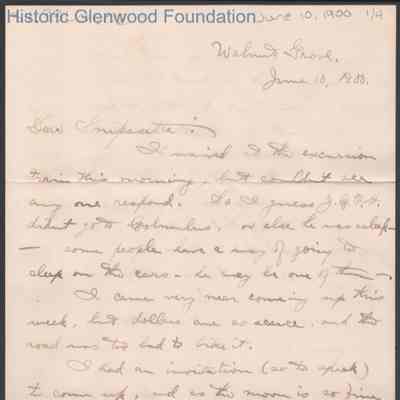 Historic Glenwood Foundation June 10, 1900 1/4
Walnut Grove,
June 10, 1900.
Dear
I waved to the excursion
train this morning, but couldn't see
any one respond. So I guess J.
didn't go to Columbus, or else he was asleep—
— some people have a way of going to
sleep on the cars — he may be one of them —.
I came very near coming up this
week, but dollars are so scarce, and the
road was too bad to bike it.
I had an invitation (so to speak)
to come up, and as the moon is so fine